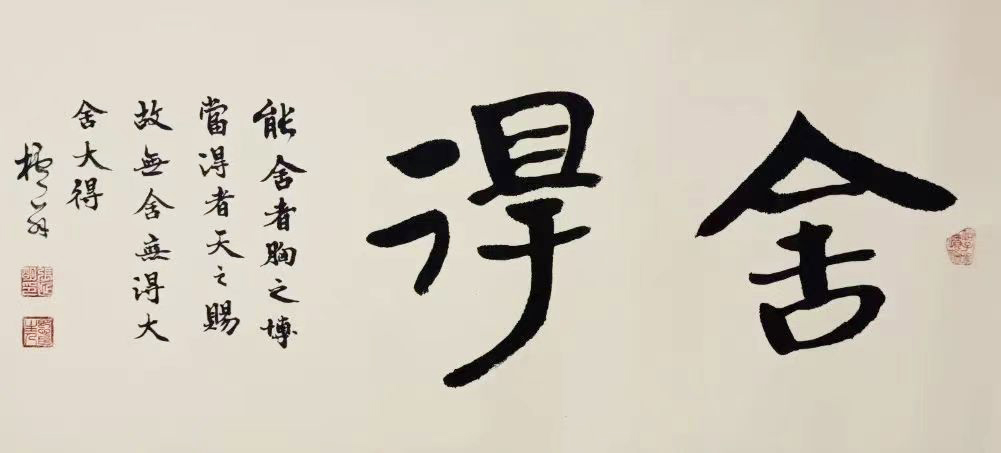 舍得
能舍者胸之博
當得者天之賜
故無舍無得大
舍大得